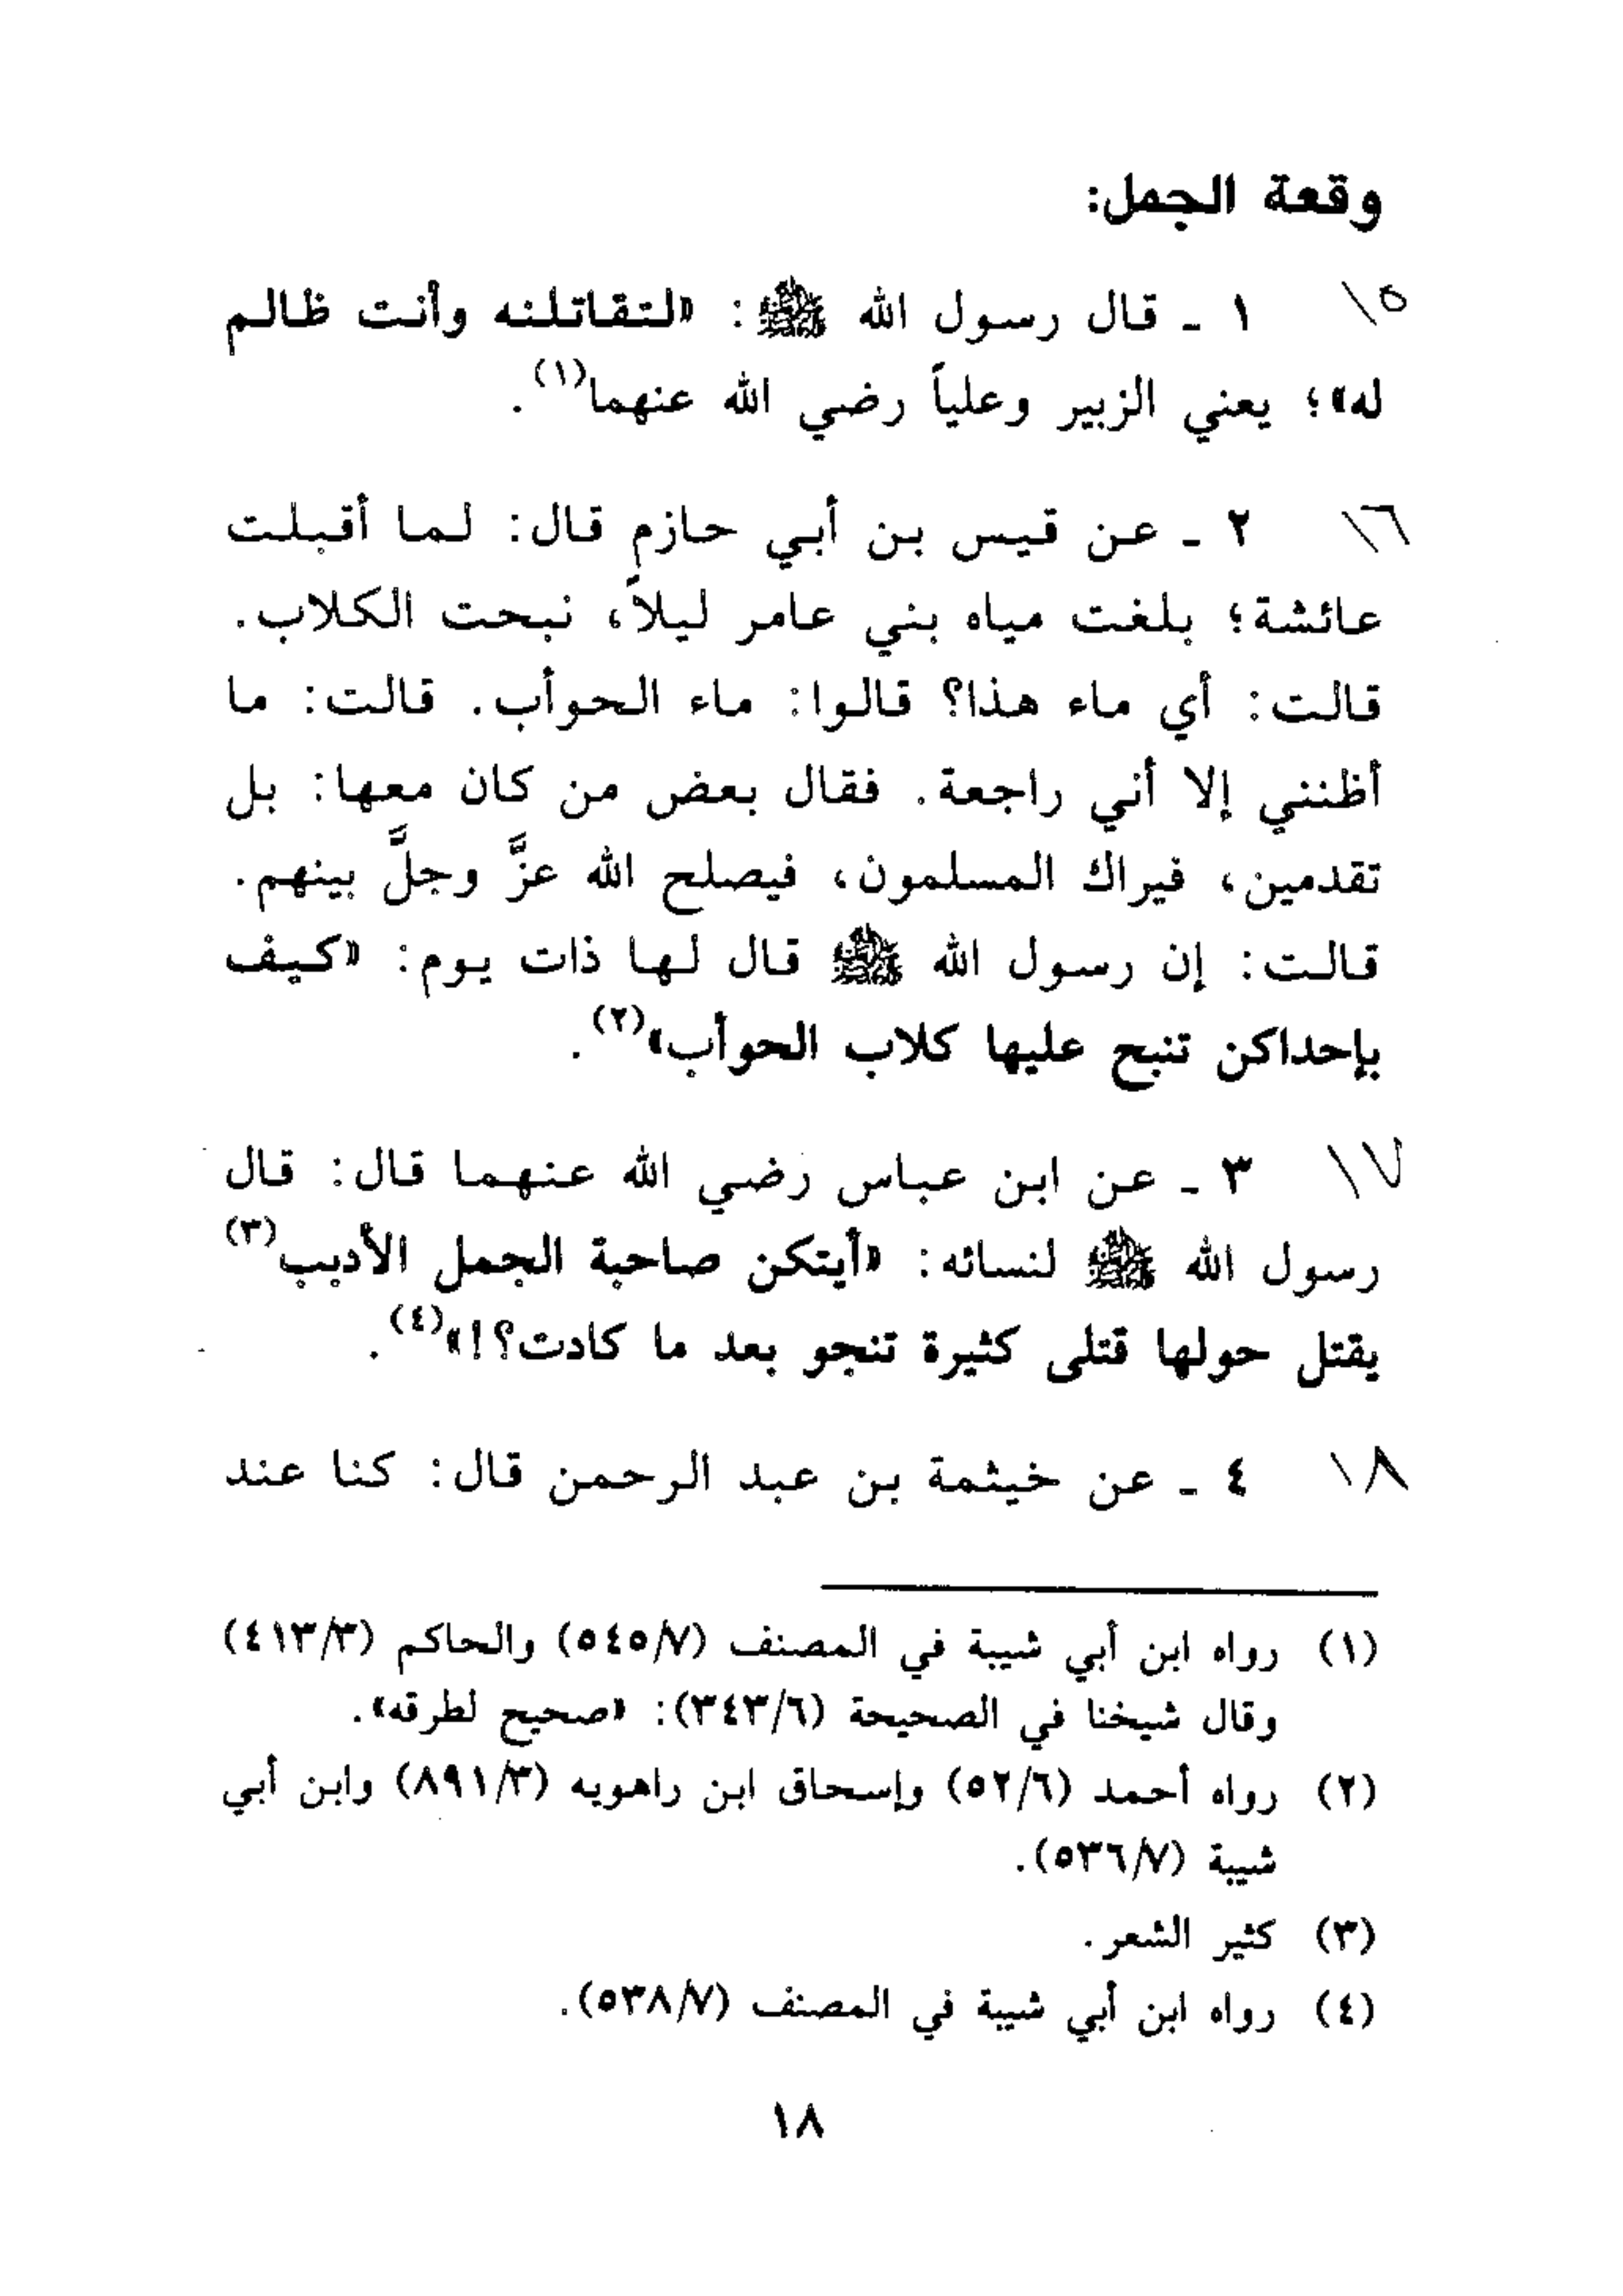 وقعة الجمل:
١٥ ١ ـ قال رسول الله ﷺ: «لتقاتلنه وأنت ظالم
له»؛ يعني الزبير وعلياً رضي الله عنهما(١).
١٦ ٢ ـ عن قيس بن أبي حازم قال: لما أقبلت
عائشة؛ بلغت مياه بني عامر ليلاً، نبحت الكلاب.
قالت: أي ماء هذا؟ قالوا: ماء الحوأب. قالت: ما
أظنني إلا أني راجعة. فقال بعض من كان معها: بل
تقدمين، فيراك المسلمون، فيصلح الله عزَّ وجلَّ بينهم.
قالت: إن رسول الله ﷺ قال لها ذات يوم: «كيف
بإحداكن تنبح عليها كلاب الحوأب»(٢).
١٧ ٣ ـ عن ابن عباس رضي الله عنهما قال: قال
رسول الله ﷺ لنسائه: «أيتكن صاحبة الجمل الأدبب(٣)
يقتل حولها قتلى كثيرة تنجو بعد ما كادت؟!»(٤).
١٨ ٤ ـ عن خيثمة بن عبد الرحمن قال: كنا عند
(١) رواه ابن أبي شيبة في المصنف (٥٤٥/٧) والحاكم (٤١٣/٣)
وقال شيخنا في الصحيحة (٣٤٣/٦): «صحيح لطرقه».
(٢) رواه أحمد (٥٢/٦) وإسحاق ابن راهويه (٨٩١/٣) وابن أبي
شيبة (٥٣٦/٧).
(٣) كثير الشعر.
(٤) رواه ابن أبي شيبة في المصنف (٥٣٨/٧).
١٨